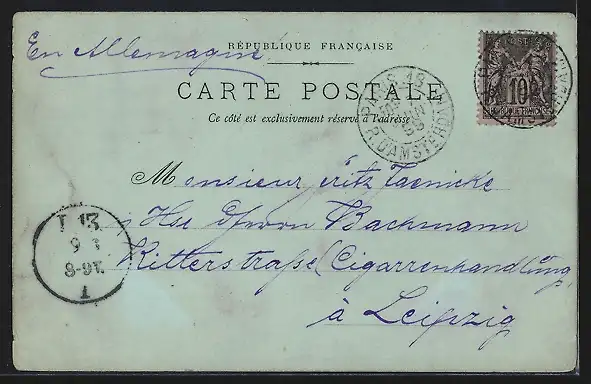 En Allemagne
RÉPUBLIQUE FRANÇAISE
CARTE POSTALE
Ce côté est exclusivement réservé à l'adresse
PARIS 18
R. D'AMSTERDAM
10
Monsieur Fritz Jaenicke
Bachmann
Ritterstraße (Cigarrenhandlung
à Leipzig
L 13
8-9V.
1